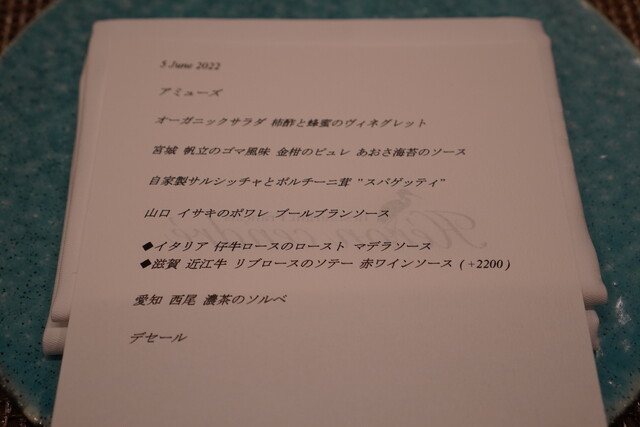 3 June 2022
アミューズ
オーガニックサラダ 柿酢と蜂蜜のヴィネグレット
宮城 帆立のゴマ風味 金柑のピュレ あおさ海苔のソース
自家製サルシッチャとポルチーニ茸 "スパゲッティ"
山口 イサキのポワレ ブールブランソース
◆イタリア 仔牛ロースのロースト マデラソース
◆滋賀 近江牛 リブロースのソテー 赤ワインソース ( +2200 )
愛知 西尾 濃茶のソルベ
デセール